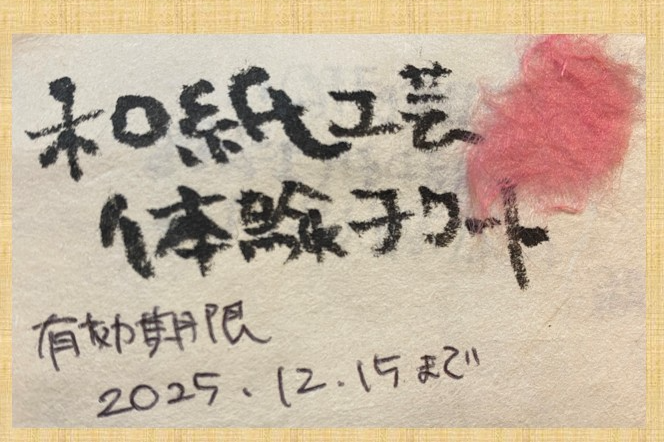 和紙工芸
体験チケット
有効期限
2025.12.15まで